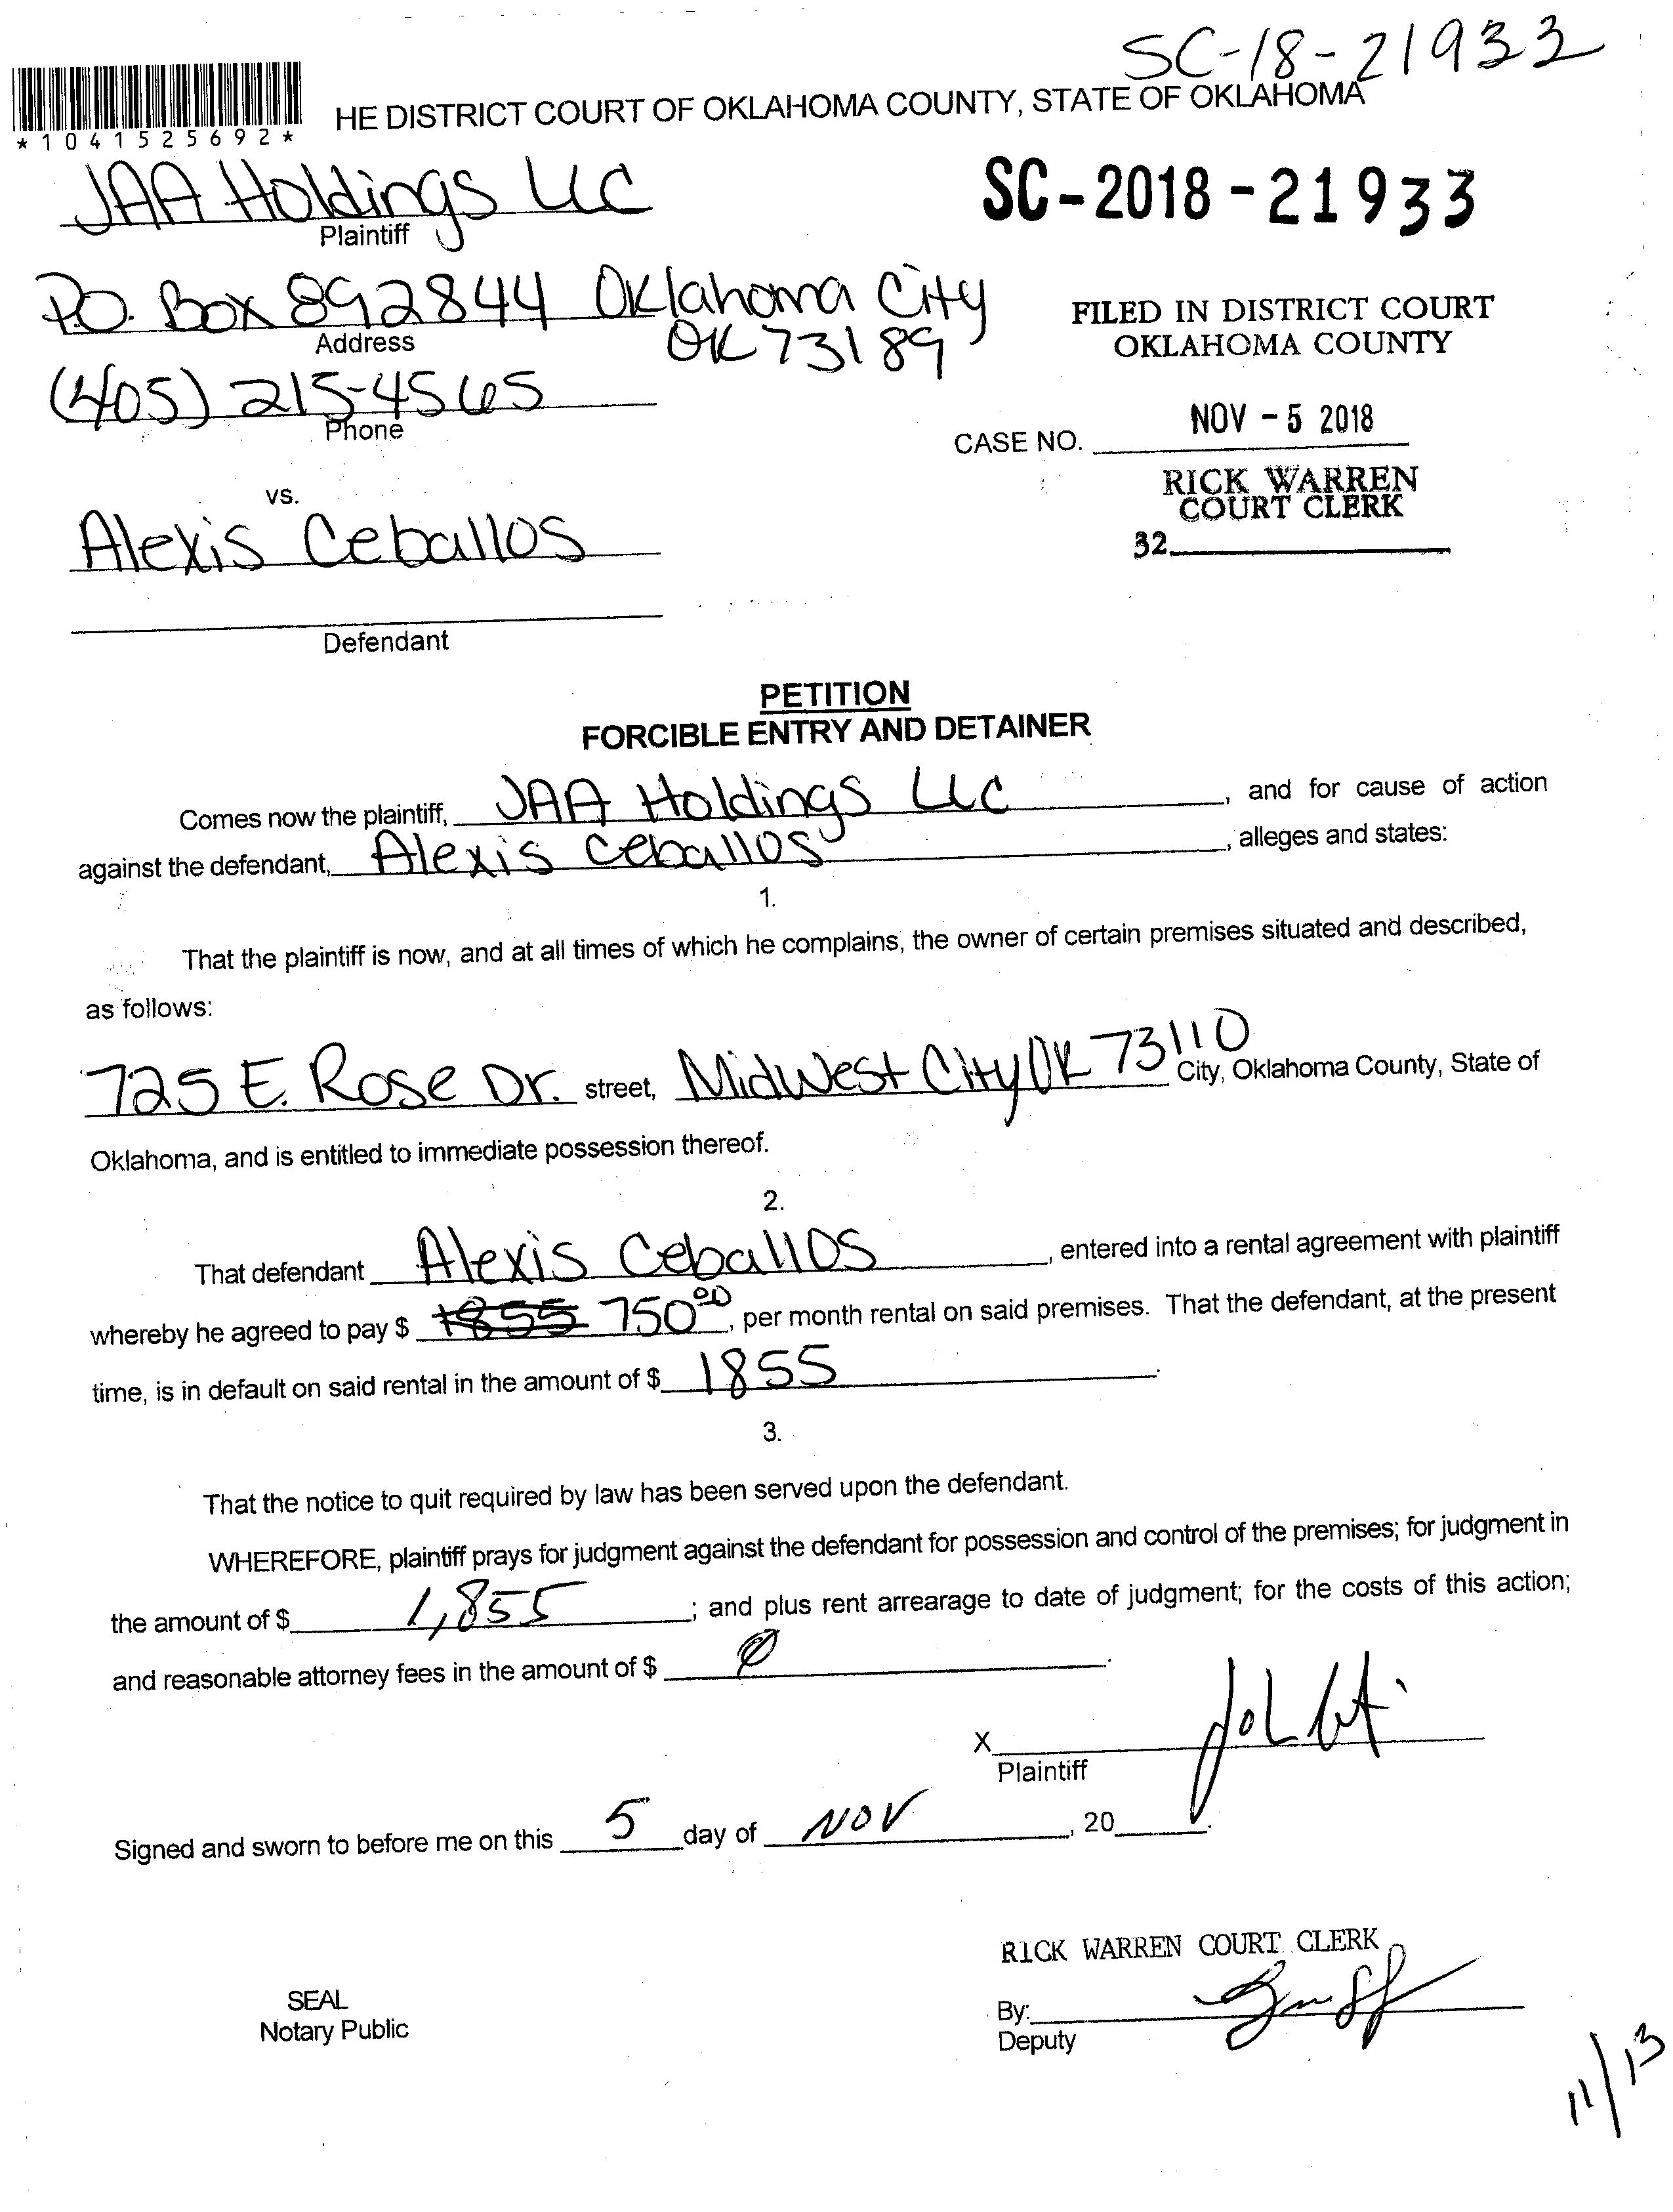 SC-18-21933
*1041525692*
HE DISTRICT COURT OF OKLAHOMA COUNTY, STATE OF OKLAHOMA
JAA Holdings LLC
Plaintiff
SC-2018-21933
P.O. Box 892844 Oklahoma City
OK 73189
Address
FILED IN DISTRICT COURT
OKLAHOMA COUNTY
(405) 215-4565
Phone
NOV - 5 2018
CASE NO.
RICK WARREN
COURT CLERK
32
vs.
Alexis Ceballos
Defendant
PETITION
FORCIBLE ENTRY AND DETAINER
Comes now the plaintiff, JAA Holdings LLC, and for cause of action
against the defendant, Alexis Ceballos, alleges and states:
1.
That the plaintiff is now, and at all times of which he complains, the owner of certain premises situated and described,
as follows:
725 E. Rose Dr. street, Midwest City OK 73110 City, Oklahoma County, State of
Oklahoma, and is entitled to immediate possession thereof.
2.
That defendant Alexis Ceballos, entered into a rental agreement with plaintiff
whereby he agreed to pay $ 1855 750 00, per month rental on said premises. That the defendant, at the present
time, is in default on said rental in the amount of $ 1855.
3.
That the notice to quit required by law has been served upon the defendant.
WHEREFORE, plaintiff prays for judgment against the defendant for possession and control of the premises; for judgment in
the amount of $ 1,855; and plus rent arrearage to date of judgment; for the costs of this action;
and reasonable attorney fees in the amount of $ 0.
X
Plaintiff
Signed and sworn to before me on this 5 day of NOV, 20.
RICK WARREN COURT CLERK
SEAL
Notary Public
By:
Deputy
11/13